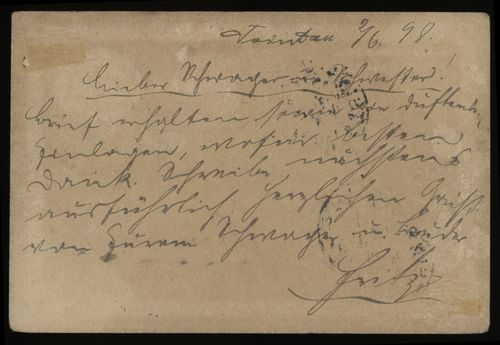 Tsintau 2/6. 98.
Lieber Schwager u. Schwester!
Brief erhalten sowie die duftenden
Einlagen, wofür besten
Dank. Schreibe nächstens
ausführlich, herzlichen Gruß
von Eurem Schwager u. Bruder
Fritz